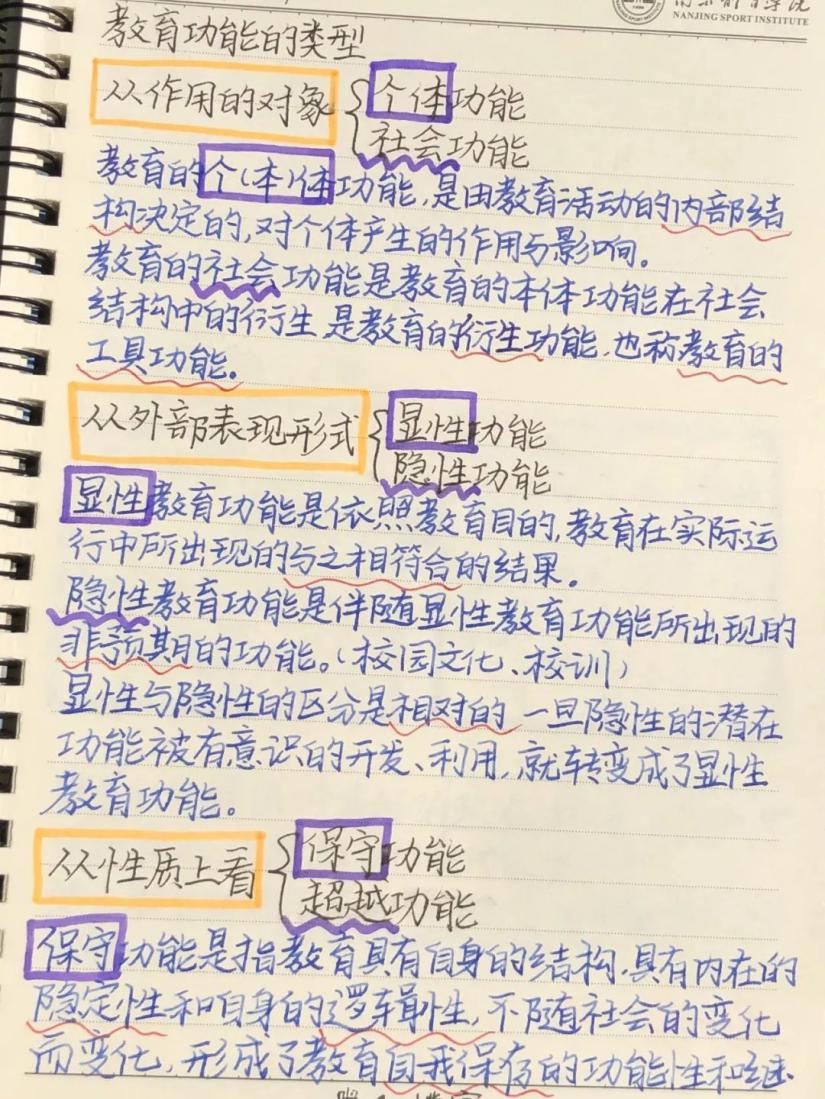 NANJING SPORT INSTITUTE
教育功能的类型
从作用的对象 个体功能
社会功能
教育的个(本)体功能,是由教育活动的内部结
构决定的,对个体产生的作用与影响。
教育的社会功能是教育的本体功能在社会
结构中的衍生,是教育的衍生功能,也称教育的
工具功能。
从外部表现形式 显性功能
隐性功能
显性教育功能是依照教育目的,教育在实际运
行中所出现的与之相符合的结果。
隐性教育功能是伴随显性教育功能所出现的
非预期的功能。(校园文化、校训)
显性与隐性的区分是相对的,一旦隐性的潜在
功能被有意识的开发、利用,就转变成了显性
教育功能。
从性质上看 保守功能
超越功能
保守功能是指教育具有自身的结构,具有内在的
隐定性和自身的逻辑性,不随社会的变化
而变化,形成了教育自我保存的功能性和